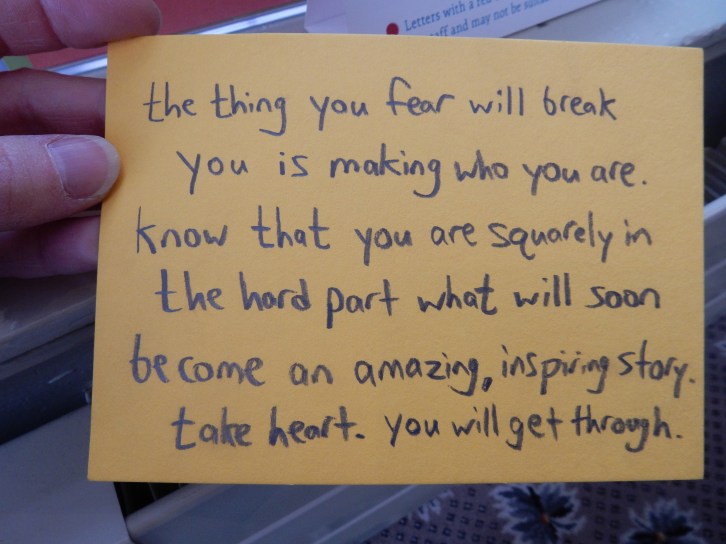 Letters with a
and may not be
the thing you fear will break
you is making who you are.
know that you are squarely in
the hard part what will soon
become an amazing, inspiring story.
take heart. you will get through.